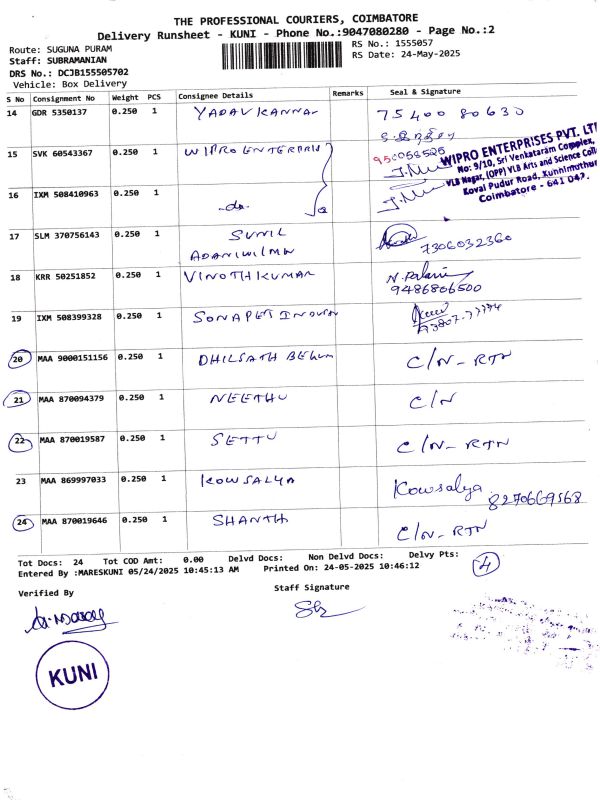 THE PROFESSIONAL COURIERS, COIMBATORE
Delivery Runsheet - KUNI - Phone No.:9047080280 - Page No.:2
Route: SUGUNA PURAM
RS No.: 1555057
Staff: SUBRAMANIAN
RS Date: 24-May-2025
DRS No.: DCJB155505702
Vehicle: Box Delivery
S No Consignment No Weight PCS Consignee Details Remarks Seal & Signature
14 GDR 5350137 0.250 1 YADAV KANNA 75400 80630
15 SVK 60543367 0.250 1 WIPRO ENTERPRIS
WIPRO ENTERPRISES PVT. LT
No: 9/10, Sri Venkataram Complex,
VLB Nagar, (OPP) VLB Arts and Science Coll
Kovai Pudur Road, Kunnimuthur
Coimbatore - 641 042.
16 IXM 508410963 0.250 1 -do-
17 SLM 370756143 0.250 1 SUNIL
ADANIWILMA 7306032360
18 KRR 50251852 0.250 1 VINOTHKUMAR N. Palani
9486806500
19 IXM 508399328 0.250 1 SONAPET INDUSN
20 MAA 9000151156 0.250 1 DHILSATH BEGUM C/N - RTN
21 MAA 870094379 0.250 1 NEETHU C/N
22 MAA 870019587 0.250 1 SETTU C/N - RTN
23 MAA 869997033 0.250 1 KOWSALYA Kowsalya
8270669568
24 MAA 870019646 0.250 1 SHANTH C/N - RTN
Tot Docs: 24 Tot COD Amt: 0.00 Delvd Docs: Non Delvd Docs: Delvy Pts: 4
Entered By :MARESKUNI 05/24/2025 10:45:13 AM Printed On: 24-05-2025 10:46:12
Verified By
Staff Signature
KUNI